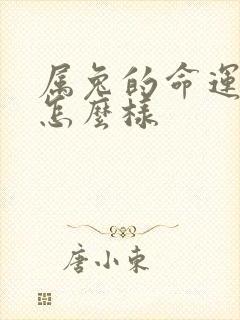 属兔的命運
怎麽樣
唐小東